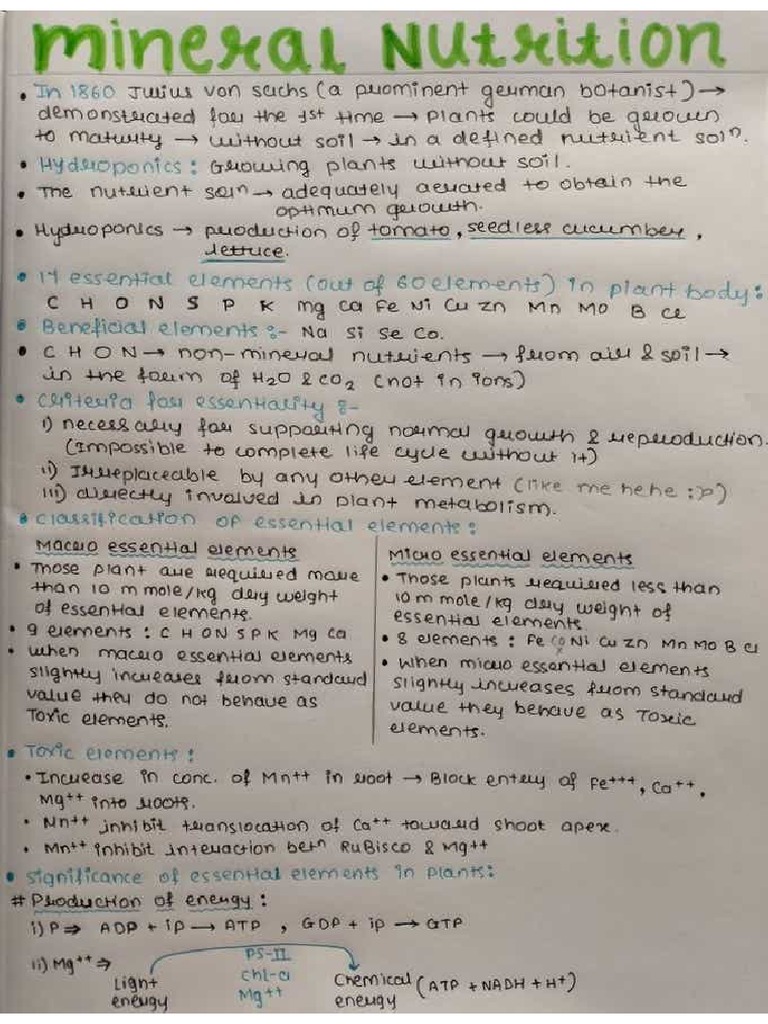 Mineral Nutrition
• In 1860 Julius von sachs (a prominent german botanist) →
demonstrated for the 1st time → plants could be grown
to maturity → without soil → in a defined nutrient solⁿ.
• Hydroponics : Growing plants without soil.
• The nutrient solⁿ → adequately aerated to obtain the
optimum growth.
• Hydroponics → production of tomato, seedless cucumber,
lettuce.
• 17 essential elements (out of 60 elements) in plant body :
C H O N S P K Mg Ca Fe Ni Cu Zn Mn Mo B Cl
• Beneficial elements :- Na Si Se Co.
• C H O N → non-mineral nutrients → from air & soil →
in the form of H₂O & CO₂ (not in ions)
• Criteria for essentiality :-
i) necessary for supporting normal growth & reproduction.
(Impossible to complete life cycle without it)
ii) Irreplaceable by any other element (like me hehe :p)
iii) directly involved in plant metabolism.
• classification of essential elements :
Macro essential elements
• Those plant are required more
than 10 m mole/kg dry weight
of essential elements.
• 9 elements : C H O N S P K Mg Ca
• when macro essential elements
slightly increases from standard
value they do not behave as
Toxic elements.
Micro essential elements
• Those plants required less than
10 m mole/kg dry weight of
essential elements
• 8 elements : Fe Ni Cu Zn Mn Mo B Cl
• when micro essential elements
slightly increases from standard
value they behave as Toxic
elements.
• Toxic elements :
• Increase in conc. of Mn++ in root → Block entry of Fe+++, Ca++,
Mg++ into roots.
• Mn++ inhibit translocation of Ca++ toward shoot apex.
• Mn++ inhibit interaction betn RuBisco & Mg++
• significance of essential elements in plants:
# Production of energy :
i) P ⇒ ADP + iP → ATP , GDP + iP → GTP
ii) Mg++ ⇒
PS-II
Light energy
Chl-a
Mg++
Chemical energy (ATP + NADH + H+)